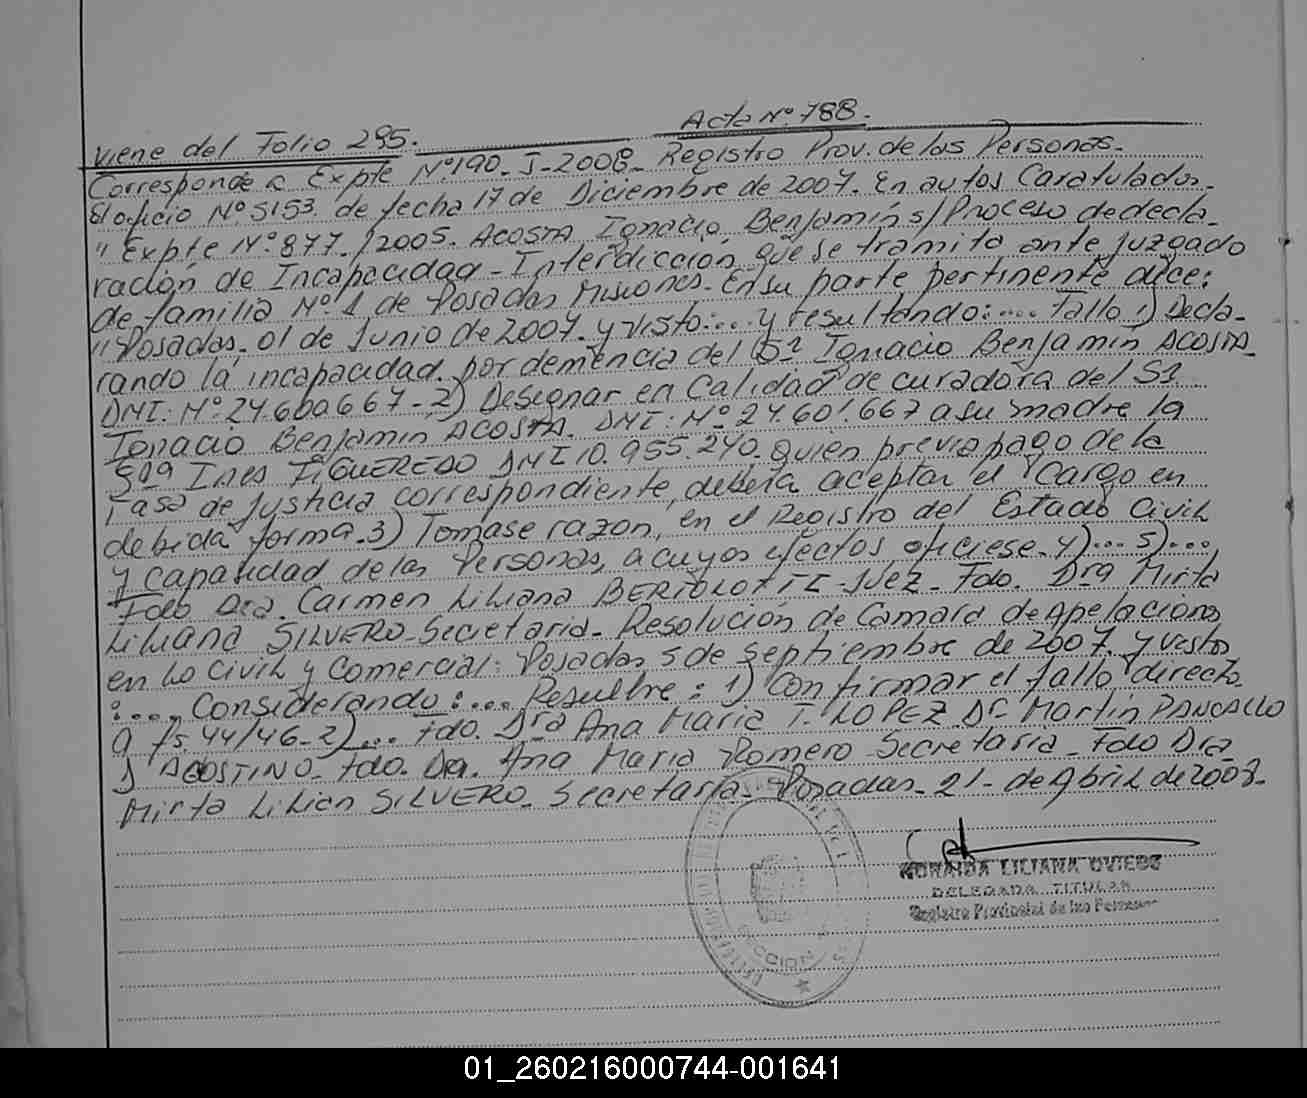 Acta Nº 788.
viene del Folio 295.
Corresponde a Expte Nº190-J-2008- Registro Prov. de las Personas-
El oficio Nº 5153. de fecha 17 de Diciembre de 2007. En autos Caratulados-
" Expte Nº 877-/2005. ACOSTA Ignacio Benjamín s/Proceso de decla-
ración de Incapacidad - Interdicción, que se tramita ante juzgado
de familia Nº 1 de Posadas Misiones- En su parte pertinente dice:
"Posadas- 01 de Junio de 2007. y visto:... y resultando:.... Fallo 1) Decla-
rando la incapacidad. por demencia del Sr Ignacio Benjamin ACOSTA
DNI: Nº 24.601.667-2) Designar en Calidad de curadora del Sr
Ignacio Benjamin ACOSTA. DNI: Nº 24.601.667 a su madre la
Sra Ines FIGUEREDO DNI 10.955.240. quien previo pago de la
Tasa de Justicia correspondiente, deberá aceptar el cargo en
debida forma-3) Tomase razon, en el Registro del Estado Civil
y Capacidad de las Personas, a cuyos efectos oficiese-4)... 5)...,
Fdo Dra. Carmen Liliana BERTOLOTTI-Juez- Fdo. Dra Mirta
Liliana SILVERO-Secretaria- Resolución de Camara de Apelaciones
en Lo Civil y Comercial: Posadas 5 de Septiembre de 2007. y vistos
:..., Considerando:... Resuelve: 1) Confirmar el fallo directo
a fs. 44/46-2)... Fdo. Dra Ana Maria T. LOPEZ Dr Martín PANCALLO
D AGOSTINO- Fdo. Dra. Ana Maria Romero Secretaria- Fdo Dra
Mirta Lilian SILVERO- Secretaria- Posadas-21-de Abril de 2008-
LILIANA OVIEDO
DELEGADA TITULAR
Registro Provincial de las Personas
01_260216000744-001641